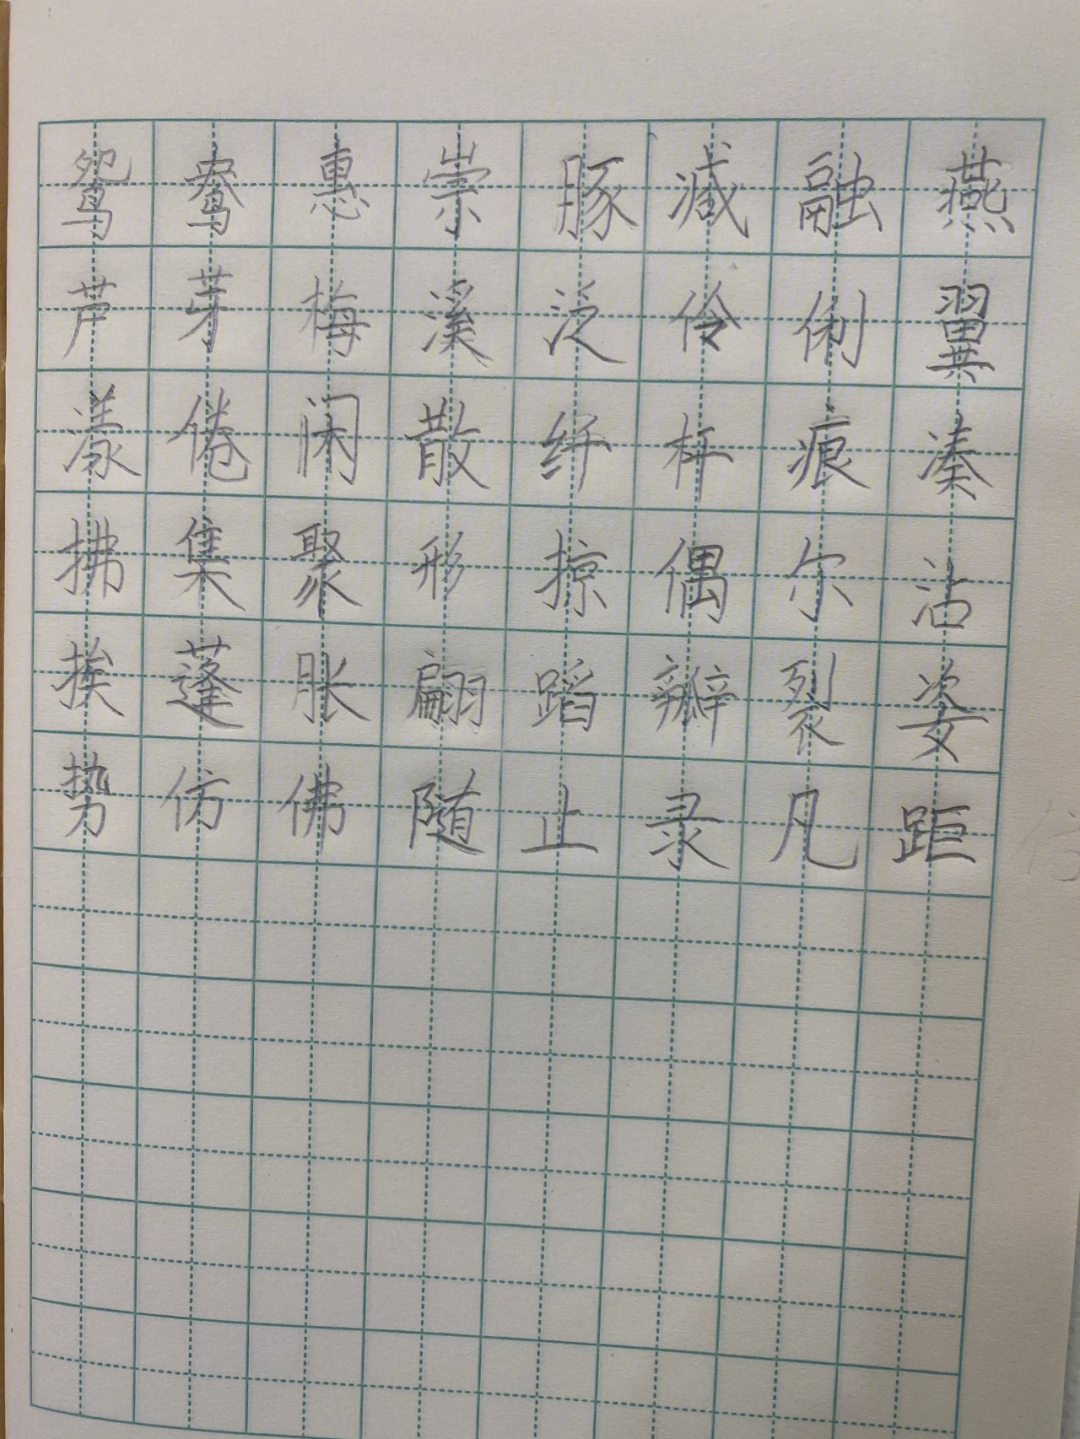 鸳鸯惠崇豚减融燕
芦芽梅溪泛伶俐翼
漾倦闲散纤杆痕凑
拂集聚形掠偶尔沾
挨蓬胀翩蹈瓣裂姿
势仿佛随止录凡距